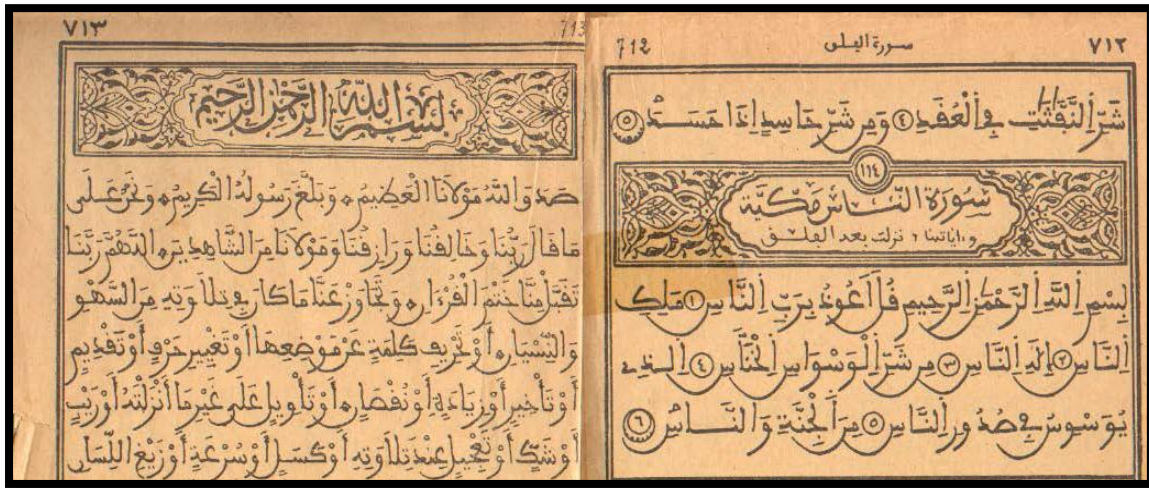 ٧١٢
سورة الفلق
712
شَرِّ اِ۬لنَّفَّٰثَٰتِ فِے اِ۬لْعُقَدِ ٤ وَمِن شَرِّ حَاسِدٍ اِذَا حَسَدَۖ ٥
١١٤
سُورَةُ النَّاسِ مَكِّيَّة
وءاياتها ٦ نزلت بعد الفلق
بِسْمِ اِ۬للَّهِ اِ۬لرَّحْمَٰنِ اِ۬لرَّحِيمِ قُلَ اَعُوذُ بِرَبِّ اِ۬لنَّاسِ ١ مَلِكِ
اِ۬لنَّاسِ ٢ إِلَٰهِ اِ۬لنَّاسِ ٣ مِن شَرِّ اِ۬لْوَسْوَاسِ اِ۬لْخَنَّاسِ ٤ اِ۬لذِے
يُوَسْوِسُ فِے صُدُورِ اِ۬لنَّاسِ ٥ مِنَ اَ۬لْجِنَّةِ وَالنَّاسِۖ ٦
٧١٣
713
بِسْمِ اللَّهِ الرَّحْمَٰنِ الرَّحِيمِ
صَدَقَ اللَّهُ مَوْلَانَا الْعَظِيمُ ه وَبَلَّغَ رَسُولُهُ الْكَرِيمُ ه وَنَحْنُ عَلَى
مَا قَالَ رَبُّنَا وَخَالِقُنَا وَرَازِقُنَا وَمَوْلَانَا مِنَ الشَّاهِدِينَ ه اللَّهُمَّ رَبَّنَا
تَقَبَّلْ مِنَّا خَتْمَ الْقُرْءَانِ ه وَتَجَاوَزْ عَنَّا مَا كَانَ فِي تِلَاوَتِهِ مِنَ السَّهْوِ
وَالنِّسْيَانِ ه أَوْ تَحْرِيفِ كَلِمَةٍ عَنْ مَوْضِعِهَا أَوْ تَغْيِيرِ حَرْفٍ أَوْ تَقْدِيمٍ
أَوْ تَأْخِيرٍ أَوْ زِيَادَةٍ أَوْ نُقْصَانٍ ه أَوْ تَأْوِيلٍ عَلَى غَيْرِ مَا أَنْزَلْتَهُ أَوْ رَيْبٍ
أَوْ شَكٍّ أَوْ تَعْجِيلٍ عِنْدَ تِلَاوَتِهِ أَوْ كَسَلٍ أَوْ سُرْعَةٍ أَوْ زَيْغِ اللِّسَانِ